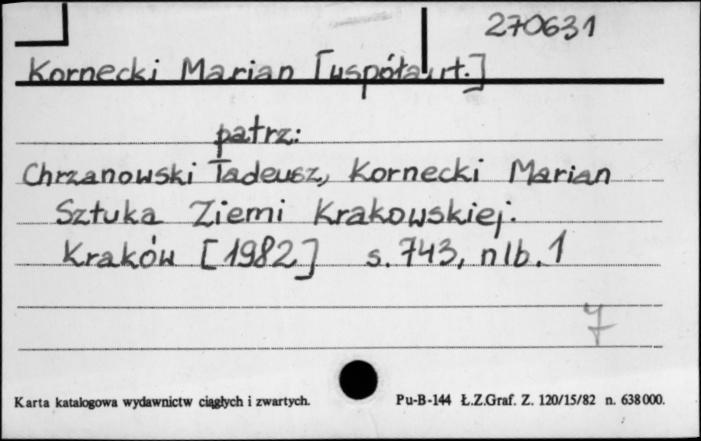 270631
Kornecki Marian [współaut.]
patrz:
Chrzanowski Tadeusz, Kornecki Marian
Sztuka Ziemi Krakowskiej.
Kraków [1982] s. 743, nlb. 1
7
Karta katalogowa wydawnictw ciągłych i zwartych. Pu-B-144 Ł.Z.Graf. Z. 120/15/82 n. 638000.